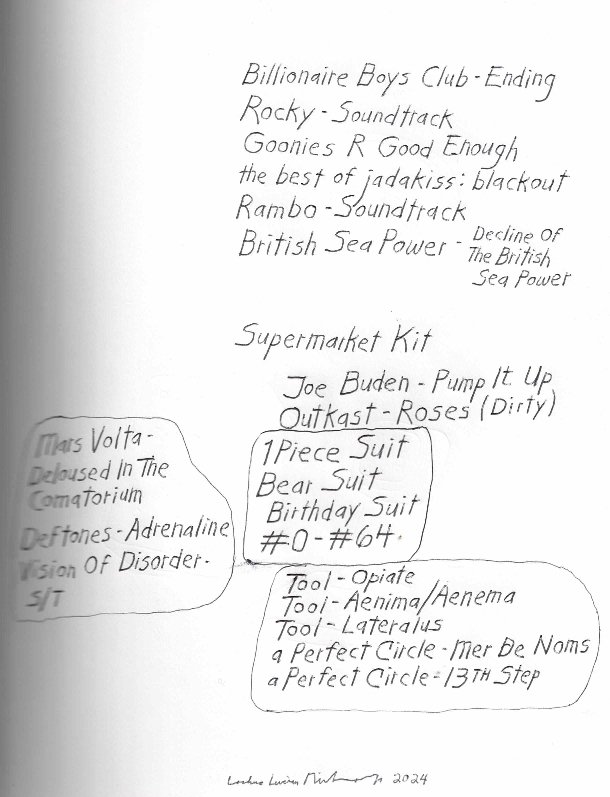 Billionaire Boys Club - Ending
Rocky - Soundtrack
Goonies R Good Enough
the best of jadakiss: blackout
Rambo - Soundtrack
British Sea Power - Decline Of
The British
Sea Power
Supermarket Kit
Joe Buden - Pump It Up
Outkast - Roses (Dirty)
1 Piece Suit
Bear Suit
Birthday Suit
#0 - #64.
Mars Volta -
Deloused In The
Comatorium
Deftones - Adrenaline
Vision Of Disorder -
S/T
Tool - Opiate
Tool - Aenima/Aenema
Tool - Lateralus
a Perfect Circle - Mer De Noms
a Perfect Circle - 13TH Step
2024